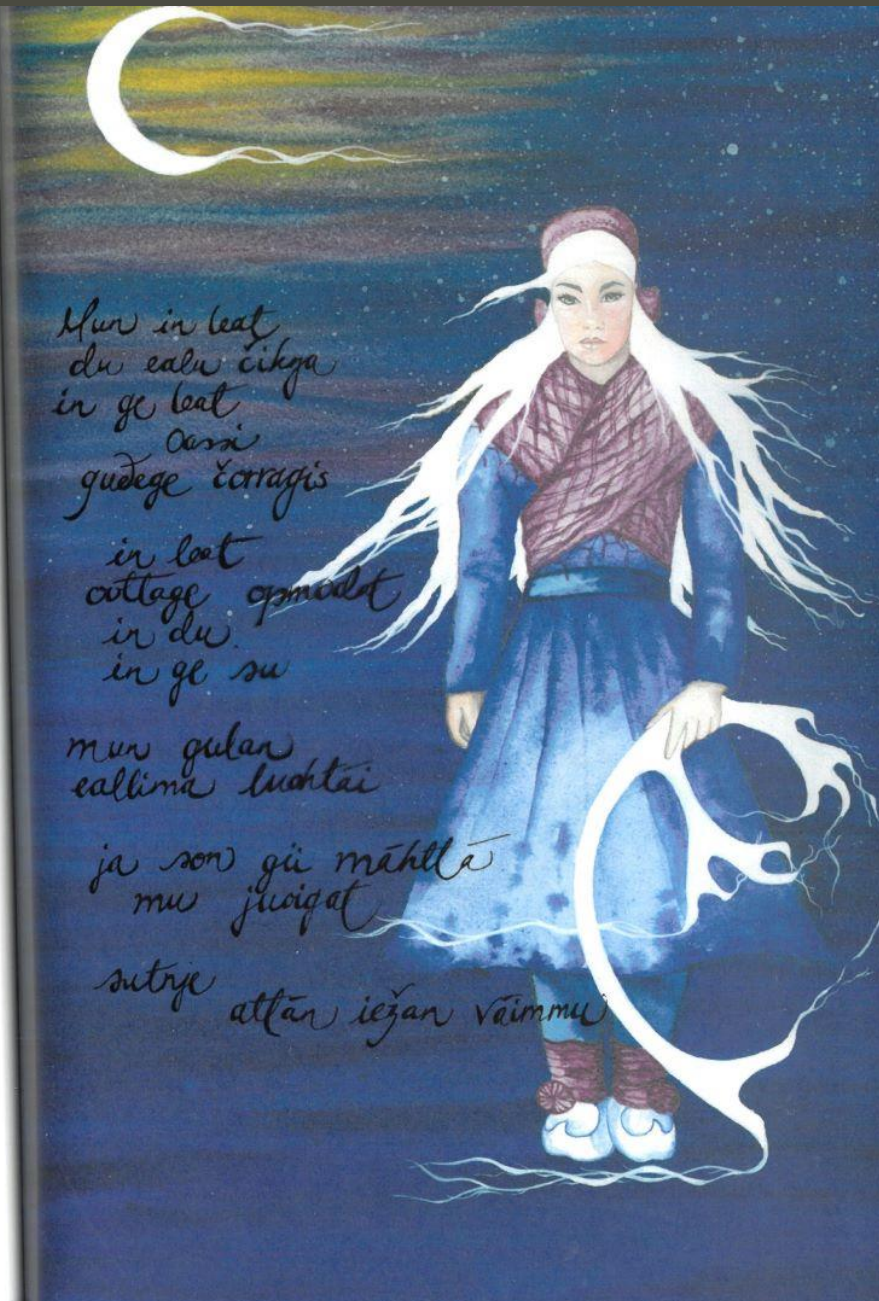 Mun in leat
du ealu čikŋa
in ge leat
oassi
guđege čorragis
in leat
ovttage opmodat
in du
in ge su
mun gulan
eallima luohtái
ja son gii máhttá
mu juoigat
sutnje
attán iežan váimmu